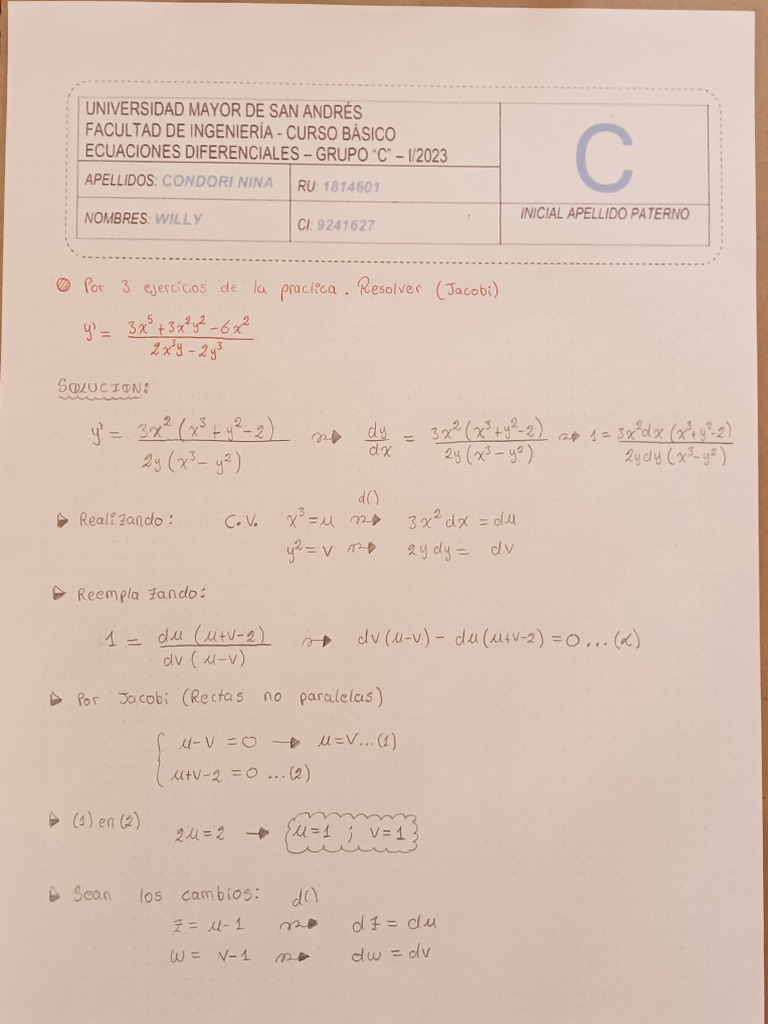 UNIVERSIDAD MAYOR DE SAN ANDRÉS
FACULTAD DE INGENIERÍA - CURSO BÁSICO
ECUACIONES DIFERENCIALES – GRUPO "C" – I/2023
APELLIDOS: CONDORI NINA RU: 1814601
NOMBRES: WILLY CI: 9241627
C
INICIAL APELLIDO PATERNO
Por 3 ejercicios de la practica. Resolver (Jacobi)
y' = (3x⁵ + 3x²y² - 6x²) / (2x³y - 2y³)
SOLUCION:
y' = 3x² (x³ + y² - 2) / 2y (x³ - y²) → dy/dx = 3x² (x³ + y² - 2) / 2y (x³ - y²) → 1 = 3x²dx (x³ + y² - 2) / 2y dy (x³ - y²)
Realizando: C.V. x³ = u d() → 3x² dx = du
y² = v → 2y dy = dv
Reemplazando:
1 = du (u+v-2) / dv (u-v) → dv (u-v) - du (u+v-2) = 0 ... (α)
Por Jacobi (Rectas no paralelas)
{ u - v = 0 → u = v ... (1)
u+v-2 = 0 ... (2)
(1) en (2) 2u = 2 → u = 1 ; v = 1
Sean los cambios: d()
z = u - 1 → dz = du
w = v - 1 → dw = dv